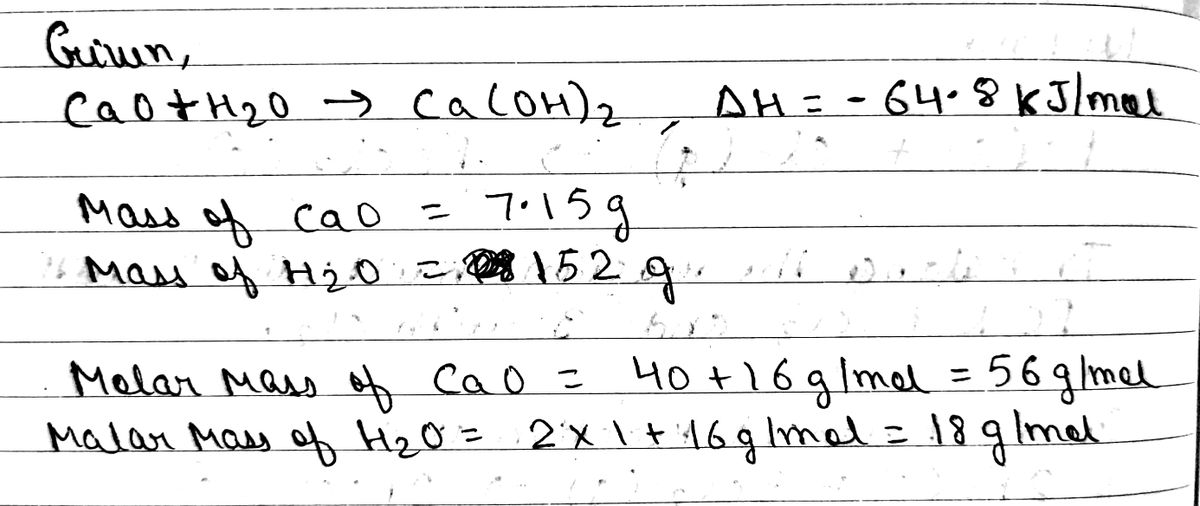 Given,
CaO + H2O → Ca(OH)2, ΔH = - 64.8 KJ/mol
Mass of CaO = 7.15 g
Mass of H2O = 152 g
Molar Mass of CaO = 40 + 16 g/mol = 56 g/mol
Malar Mass of H2O = 2 x 1 + 16 g/mol = 18 g/mol